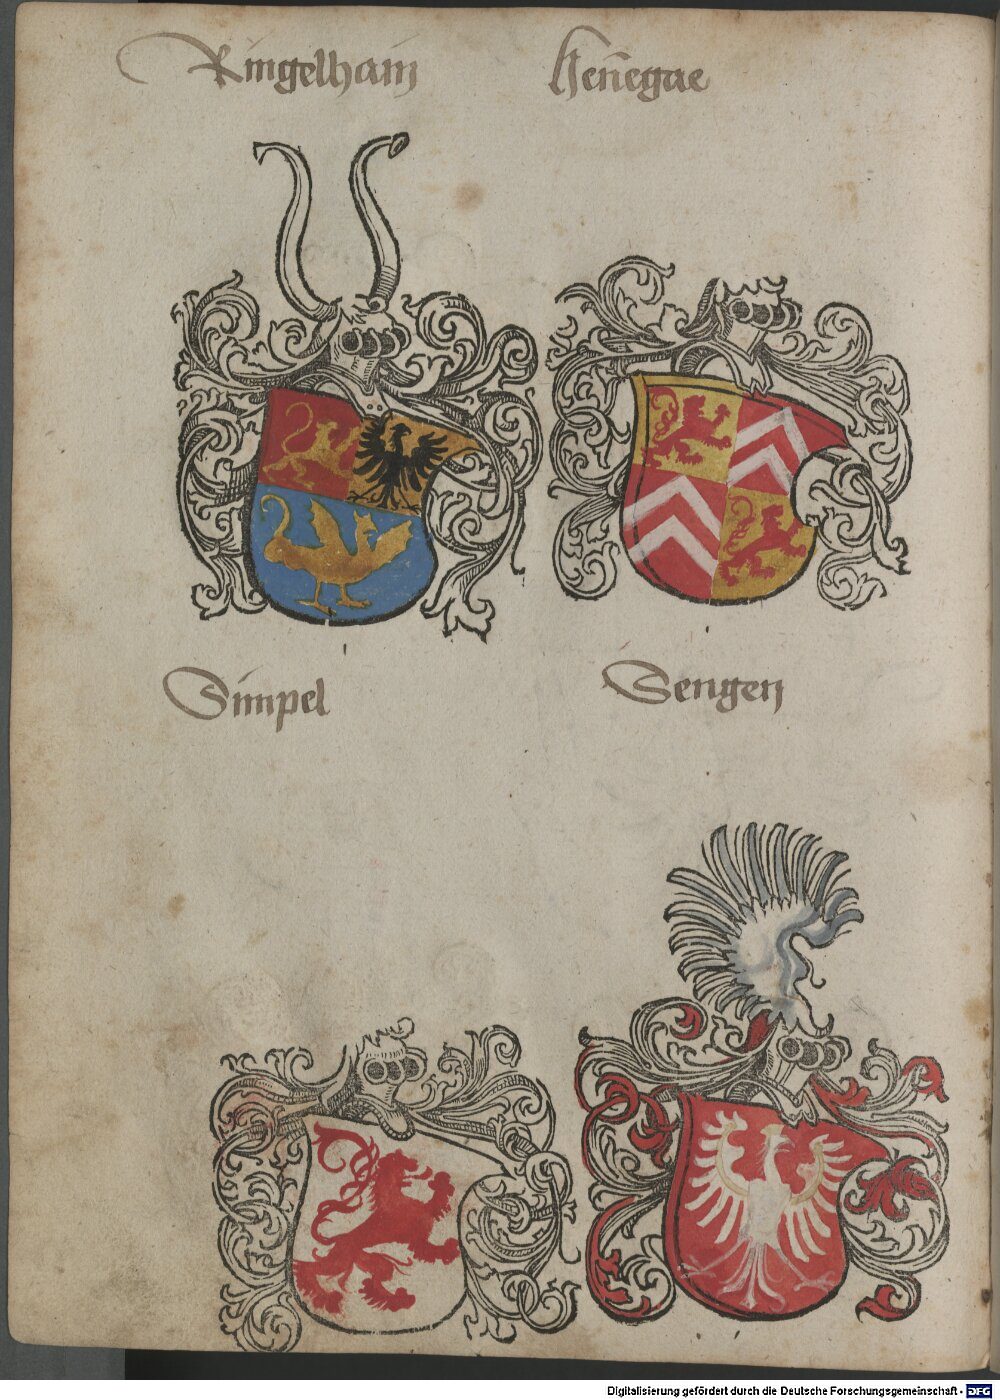 Ringelhaim
Henegaw
Simpel
Sengen
Digitalisierung gefördert durch die Deutsche Forschungsgemeinschaft - DFG